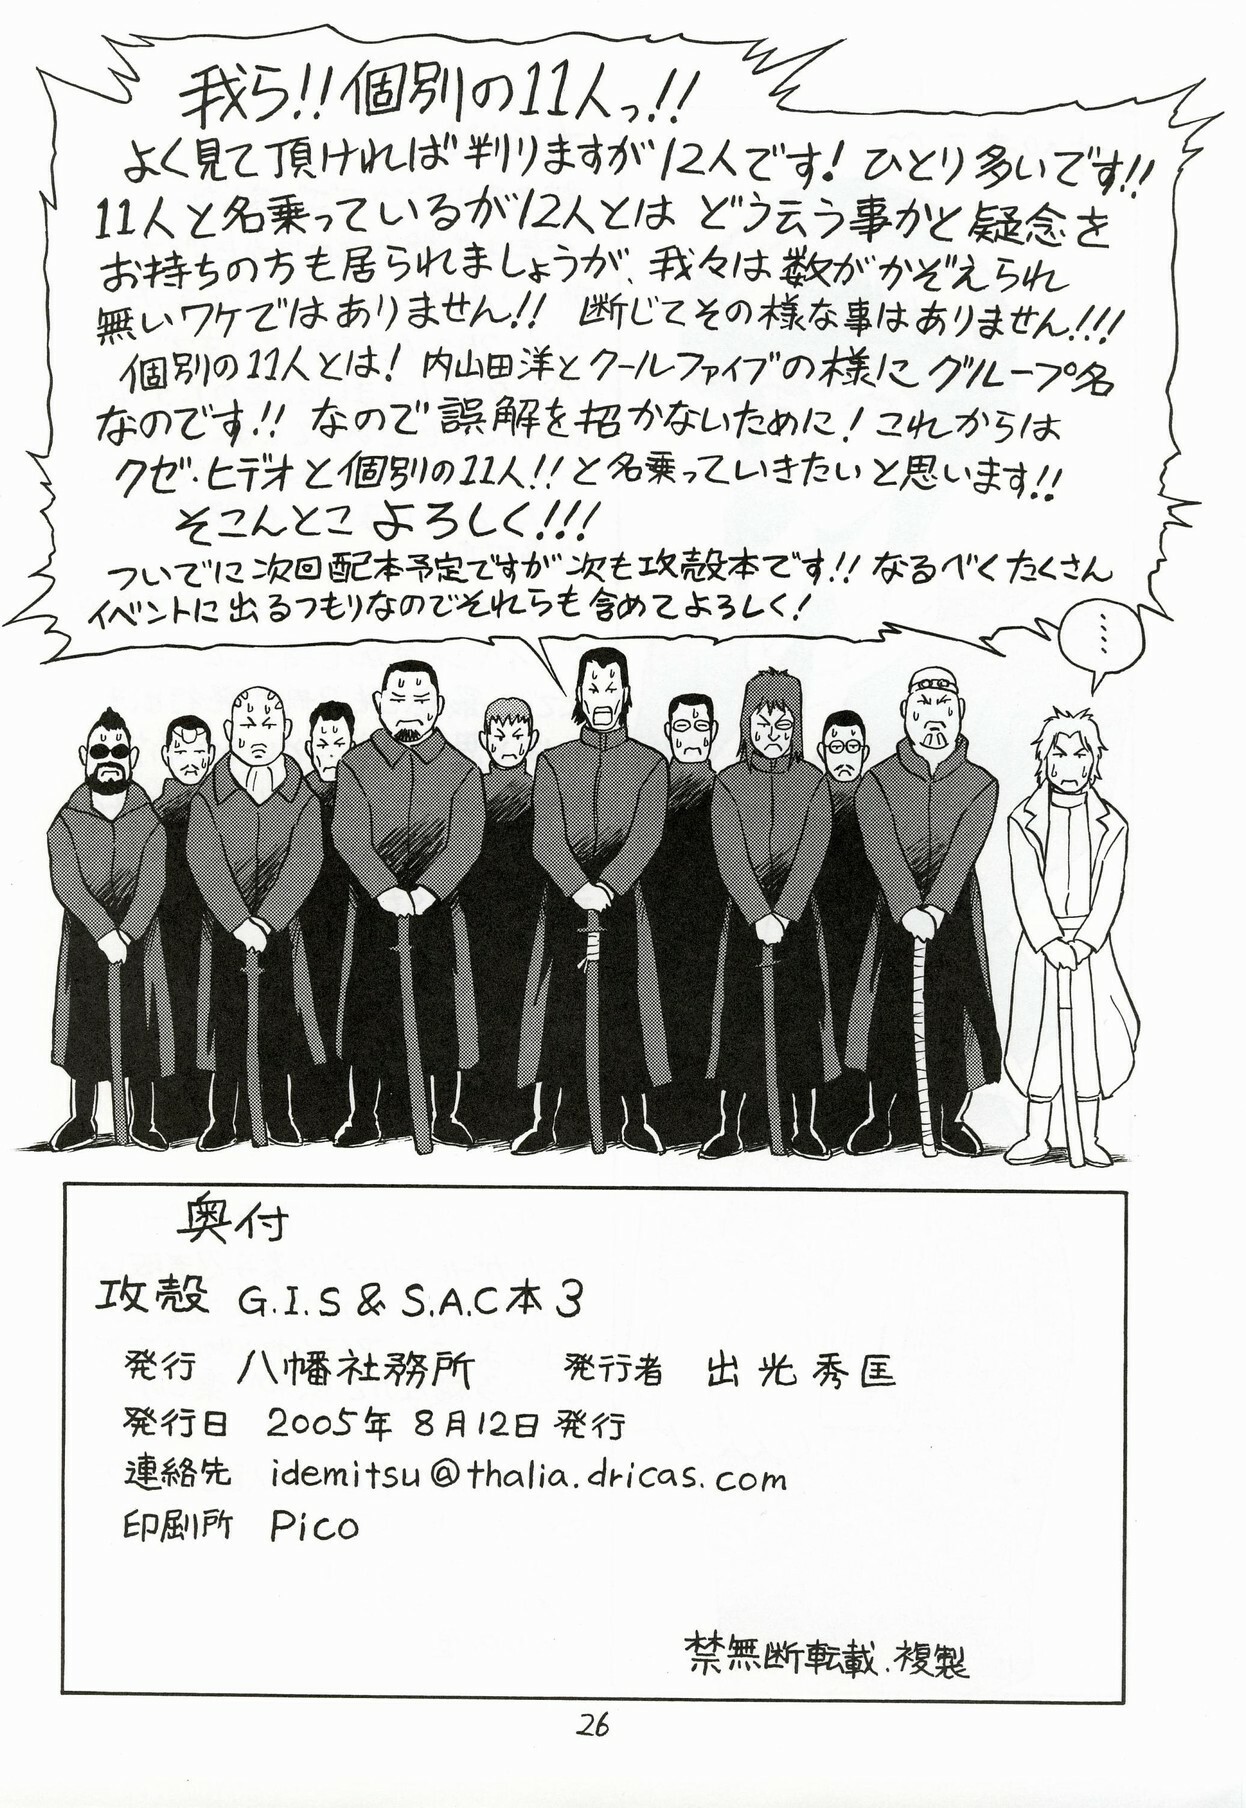 我ら!!個別の11人っ!!
よく見て頂ければ判りますが12人です! ひとり多いです!!
11人と名乗っているが12人とは どう云う事かと疑念を
お持ちの方も居られましょうが、我々は数がかぞえられ
無いワケではありません!! 断じてその様な事はありません!!!
個別の11人とは! 内山田洋とクールファイブの様にグループ名
なのです!! なので誤解を招かないために! これからは
クゼ・ヒデオと個別の11人!!と名乗っていきたいと思います!!
そこんとこ よろしく!!!
ついでに次回配本予定ですが次も攻殻本です!! なるべくたくさん
イベントに出るつもりなのでそれらも含めてよろしく!
……
奥付
攻殻 G.I.S & S.A.C本3
発行 八幡社務所 発行者 出光秀匡
発行日 2005年8月12日発行
連絡先 idemitsu@thalia.dricas.com
印刷所 Pico
禁無断転載.複製
26